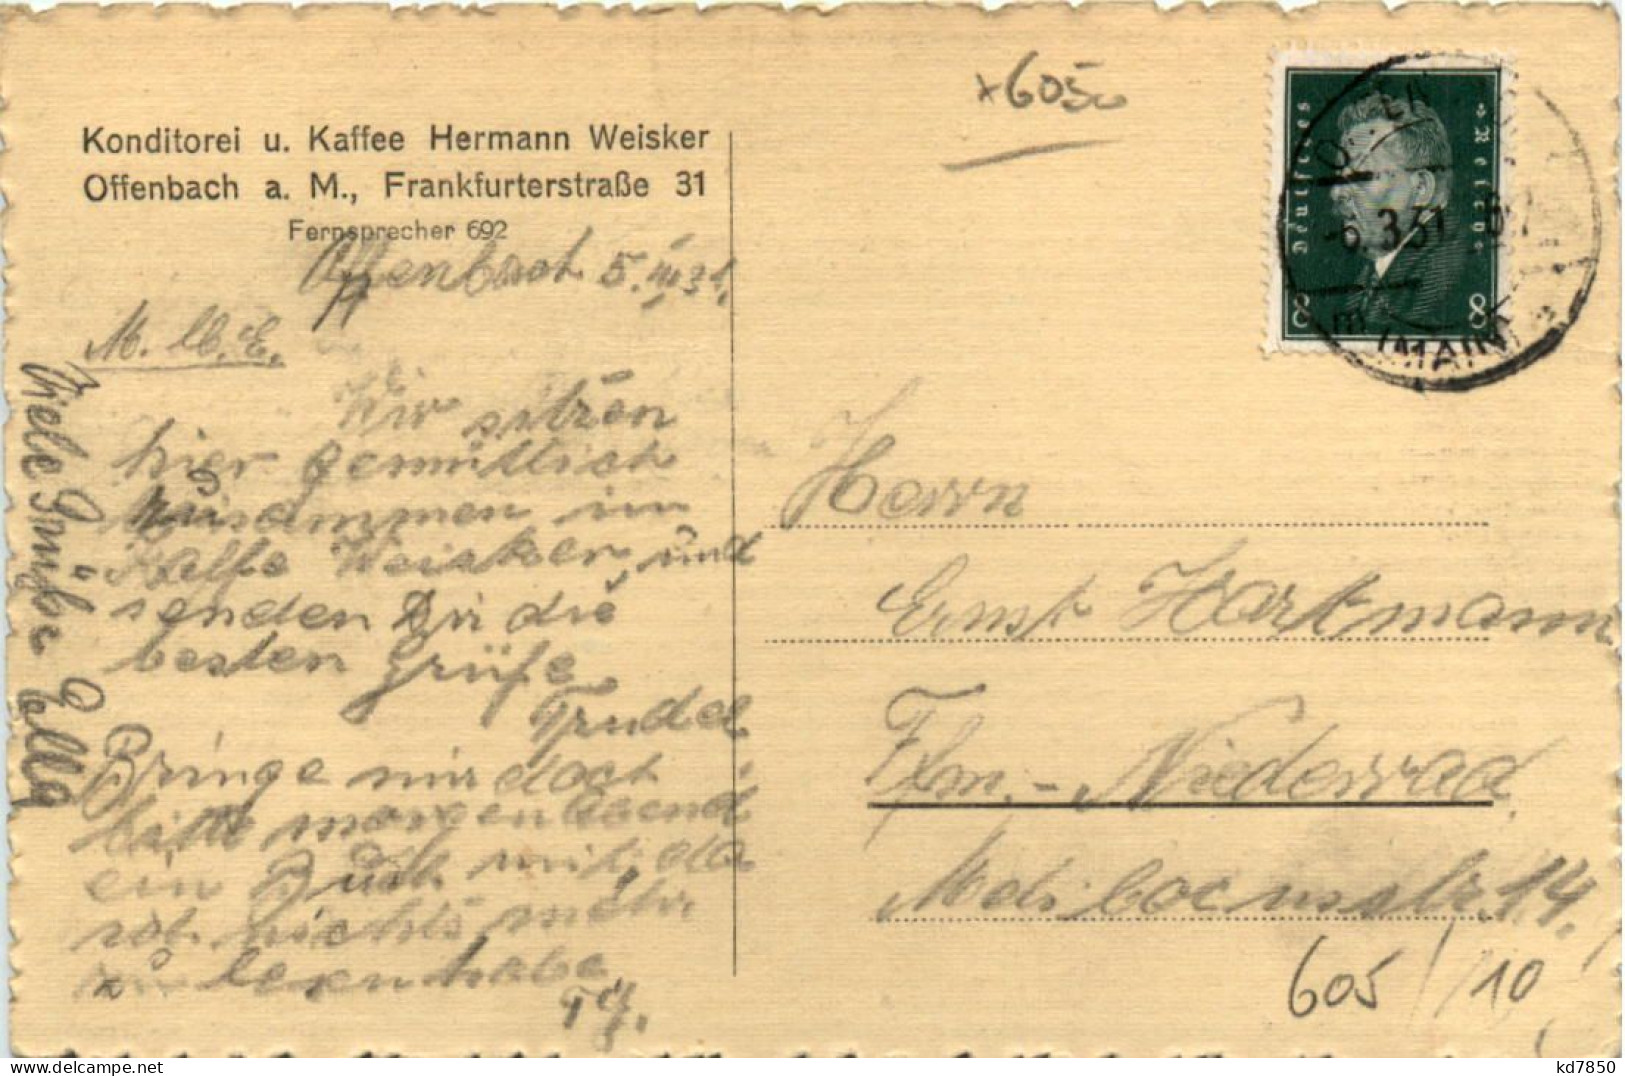 Konditorei u. Kaffee Hermann Weisker
Offenbach a. M., Frankfurterstraße 31
Fernsprecher 692
Offenbach 5.III.31.
M. lb. E.
Wir sitzen
hier gemütlich
zusammen im
Kaffe Weisker und
senden Dir die
besten Grüße
Trudel
Bringe mir doch
bitte morgen Abend
ein Buch mit, da
ich nichts mehr
zu lesen habe
Viele Grüße Ella
+6050
Deutsches Reich
8 8
-6.3.31
(MAIN)
Herrn
Ernst Hartmann
Ffm.-Niederrad
Melibocusstr. 14.
605/10
kd7850